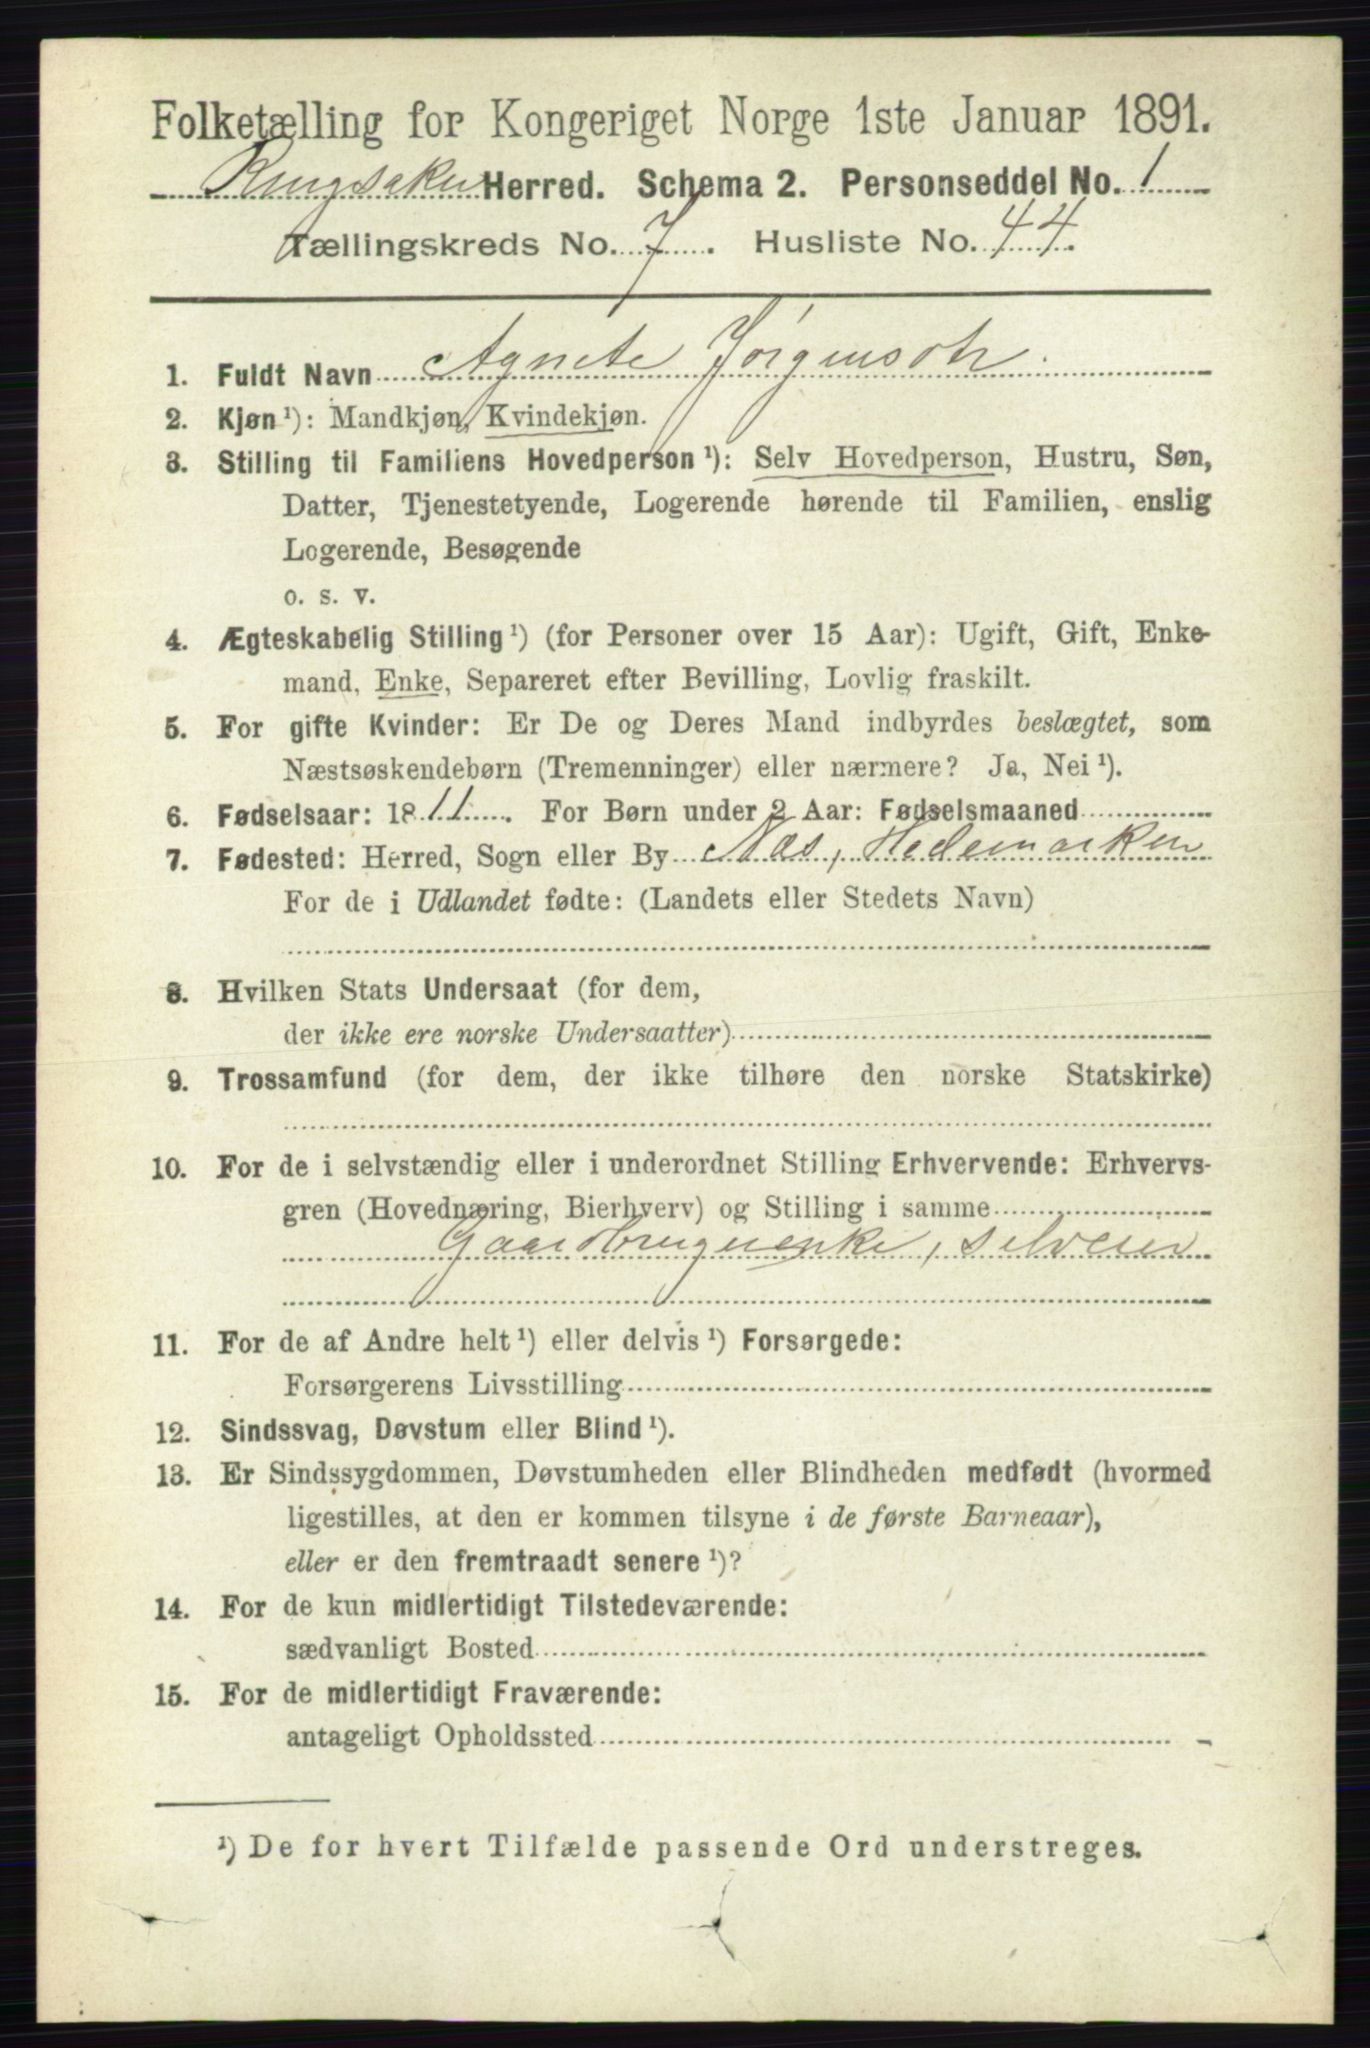 Folketælling for Kongeriget Norge 1ste Januar 1891.
Ringsaker Herred. Schema 2. Personseddel No. 1
Tællingskreds No. 7. Husliste No. 44.
1. Fuldt Navn Agnete Jørgensdtr.
2. Kjøn¹): Mandkjøn, Kvindekjøn.
3. Stilling til Familiens Hovedperson¹): Selv Hovedperson, Hustru, Søn,
Datter, Tjenestetyende, Logerende hørende til Familien, enslig
Logerende, Besøgende
o. s. v.
4. Ægteskabelig Stilling¹) (for Personer over 15 Aar): Ugift, Gift, Enke-
mand, Enke, Separeret efter Bevilling, Lovlig fraskilt.
5. For gifte Kvinder: Er De og Deres Mand indbyrdes beslægtet, som
Næstsøskendebørn (Tremenninger) eller nærmere? Ja, Nei¹).
6. Fødselsaar: 1811. For Børn under 2 Aar: Fødselsmaaned
7. Fødested: Herred, Sogn eller By Næs, Hedemarken
For de i Udlandet fødte: (Landets eller Stedets Navn)
8. Hvilken Stats Undersaat (for dem,
der ikke ere norske Undersaatter)
9. Trossamfund (for dem, der ikke tilhøre den norske Statskirke)
10. For de i selvstændig eller i underordnet Stilling Erhvervende: Erhvervs-
gren (Hovednæring, Bierhverv) og Stilling i samme
Gaardbrugerenke, selveier
11. For de af Andre helt¹) eller delvis¹) Forsørgede:
Forsørgerens Livsstilling
12. Sindssvag, Døvstum eller Blind¹).
13. Er Sindssygdommen, Døvstumheden eller Blindheden medfødt (hvormed
ligestilles, at den er kommen tilsyne i de første Barneaar),
eller er den fremtraadt senere¹)?
14. For de kun midlertidigt Tilstedeværende:
sædvanligt Bosted
15. For de midlertidigt Fraværende:
antageligt Opholdssted
¹) De for hvert Tilfælde passende Ord understreges.